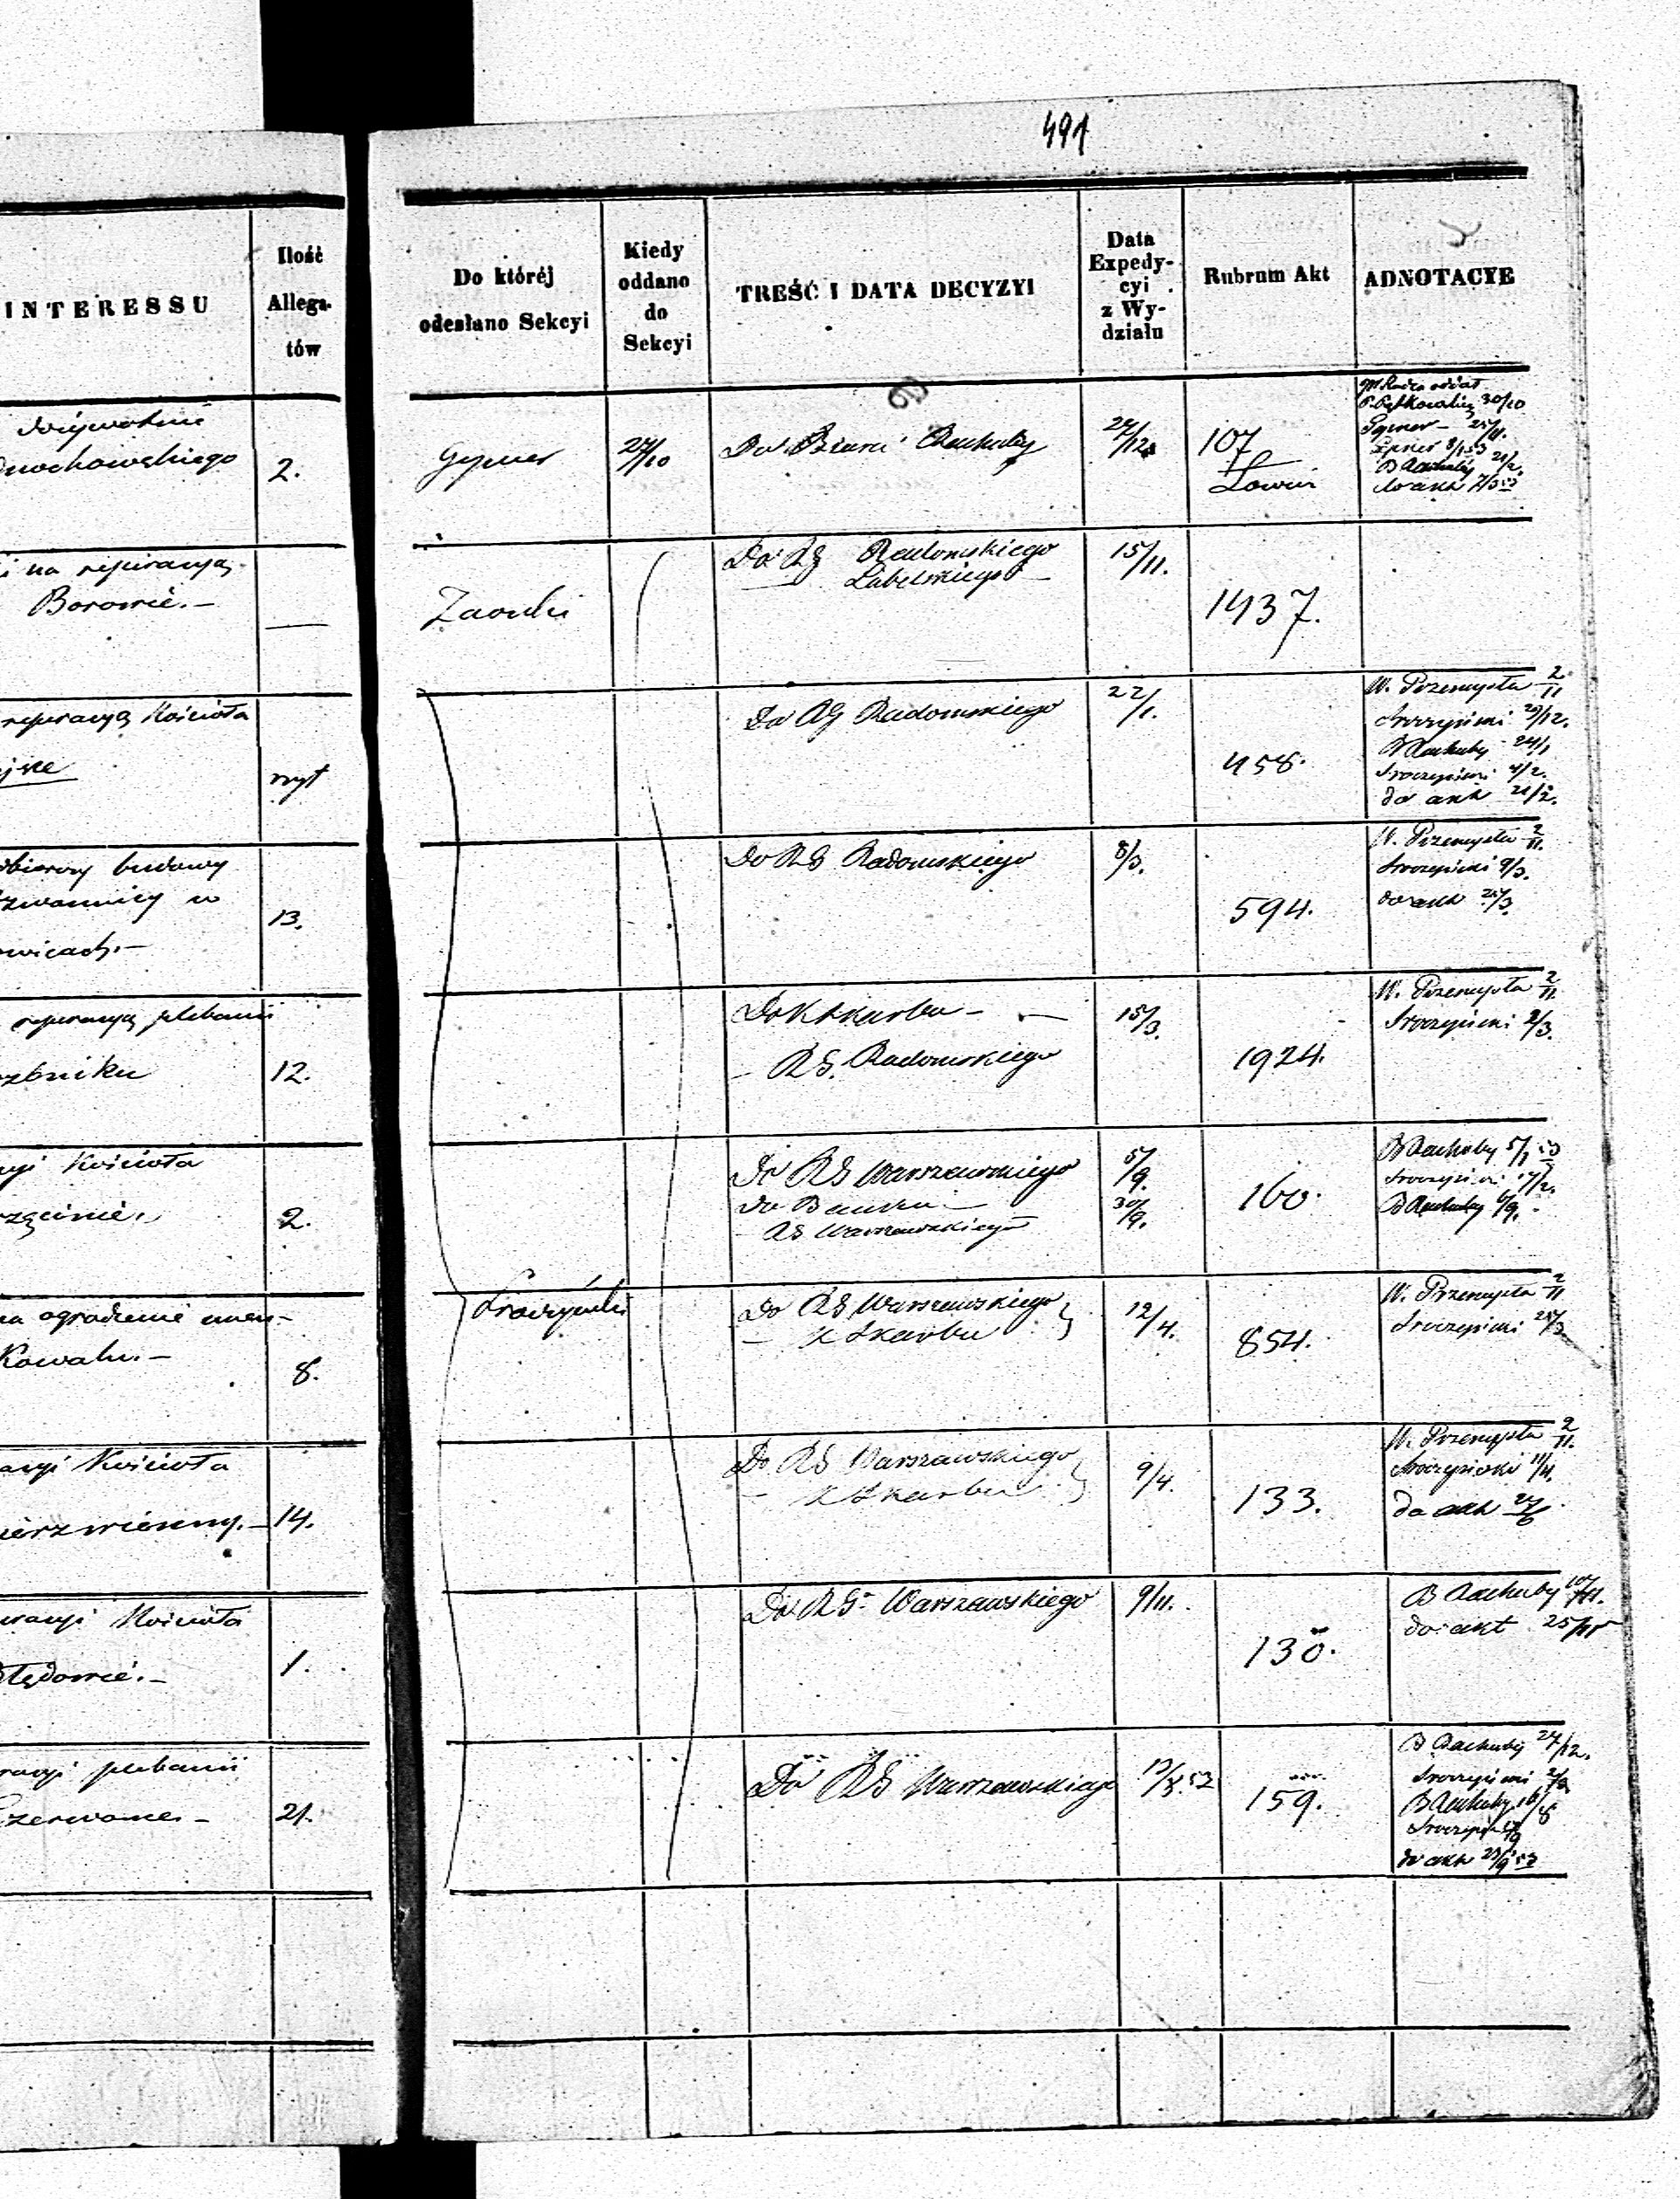 491
INTERESSU
Ilość
Allega-
tów
Do któréj
odesłano Sekcyi
Kiedy
oddano
do
Sekcyi
TREŚĆ I DATA DECYZYI
Data
Expedy-
cyi
z Wy-
działu
Rubrum Akt
ADNOTACYE
2.
27/10
Do Biura Rachuby
24/12
107
Łowicz
30/10
25/11.
B Rachuby 21/2.
do akt
i na reperacyą
Borowie.—
—
Do RG Radomskiego
Lubelskiego —
15/11.
1437.
reperacyą Kościoła
Do RG Radomskiego
22/1.
458.
W. Przemysłu 2/11
Sroczyński 29/12.
B Rachuby 24/1
Sroczyński 4/2.
do akt 21/2.
budowy
dzwonnicy w
owicach.—
13.
Do RG Radomskiego
8/3.
594.
W. Przemysłu 2/11.
Sroczyński 9/3.
do akt 25/3.
reperacyą plebanii
12.
Do K Skarbu — —
— RG. Radomskiego
15/3.
1924.
W. Przemysłu 2/11.
Sroczyński 2/3.
Kościoła
2.
Do RG Warszawskiego
Do Banku —
RG Warszawskiego
5/9.
30/9.
160.
B Rachuby 5/1 53
Sroczyński 17/2.
B Rachuby 6/9.
na ogrodzenie cmen-
Kowalu.—
8.
Sroczyński
Do RG Warszawskiego
— K Skarbu
12/4.
854.
W. Przemysłu 2/11
Sroczyński 25/3
Kościoła
14.
Do RG Warszawskiego
— K Skarbu
9/4.
133.
W. Przemysłu 2/11.
Sroczyński 11/4.
do akt 27/6
Kościoła
Błędowie.—
1.
Do RG Warszawskiego
9/11.
130.
B Rachuby 10/11.
do akt 25/11
plebanii
21.
Do RG Warszawskiego
159.
B Rachuby 27/12.
Sroczyński
B Rachuby 16/8
Sroczyński
do akt 23/9 53